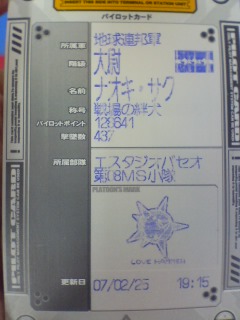 INSERT THIS SIDE INTO TERMINAL OR STATION UNIT.
パイロットカード
所属軍 地球連邦軍
階級 大尉
名前 ナオキ・サク
称号 戦場の絆犬
パイロットポイント 128641
撃墜数 437
所属部隊 エスタジオパセオ
第08MS小隊
PLATOON'S MARK
更新日 07/02/25 19:15
PILOT CARD